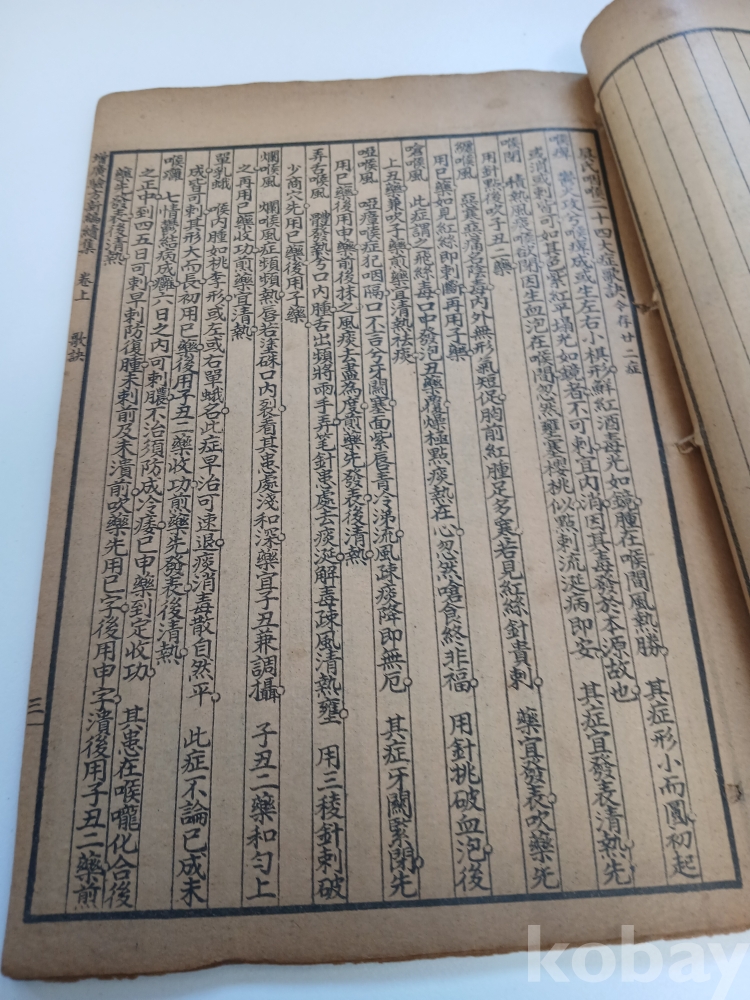 吳氏咽喉二十四大症歌訣 今存廿二症
喉痺 成或生左右小棋形鮮紅酒毒光如鏡腫在喉間風熱勝 其症形小而圓初起
或消或刺皆可如其色紫紅平塌光如鏡者不可刺宜內消因其毒發於本源故也 其症宜發表清熱先
喉閉 積熱風 喉欲閉因生血泡在喉間忽然壅塞櫻桃似點刺流涎病即安
用針點後吹子丑二藥 藥宜發表吹藥先
纏喉風 惡寒惡痛名陰毒內外無形氣短促胸前紅腫足多寒若見紅絲針貴刺
用巳藥如見紅絲即刺斷再用子藥
嗆喉風 此症謂之飛絲毒口中發泡丑藥 燥極點痰熱在心忽然嗆食終非福 用針挑破血泡後
上丑藥兼吹子藥煎藥宜清熱袪痰
啞喉風 啞瘴喉症犯咽隔口不言兮牙關塞面紫唇青冷涕流風疎痰降即無厄 其症牙關緊閉先
用巳藥後用申藥煎後抹之風痰去盡為度煎藥先發表後清熱
弄舌喉風 體發熱兮口內腫舌出頻將兩手弄笔針患處去痰涎解毒疎風清熱壅 用三稜針刺破
少商穴先用巳藥後用子藥
爛喉風 爛喉風症頻頻熱唇若塗硃口內裂看其患處淺和深藥宜子丑兼調攝 子丑二藥和勻上
之再用巳藥收功煎藥宜清熱
單乳蛾 喉內腫如桃李形或左或右單蛾名此症早治可速退痰消毒散自然平 此症不論已成未
成皆可刺其形大而長初用巳藥後用子丑二藥收功煎藥先發表後清熱
喉癰 七情鬱結病成癰六日之內可刺膿不治須防成冷痿巳申藥到定收功 其患在喉嚨化合後
之正中到四五日可刺早刺防復腫未刺前及未潰前吹藥先用巳字後用申字潰後用子丑二藥煎
藥先發表後清熱
增廣驗方新編續集 卷上 歌訣 三
kobay